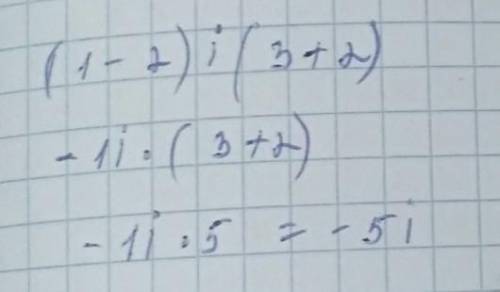 (1-2)i(3+2)
-1i·(3+2)
-1i·5 = -5i